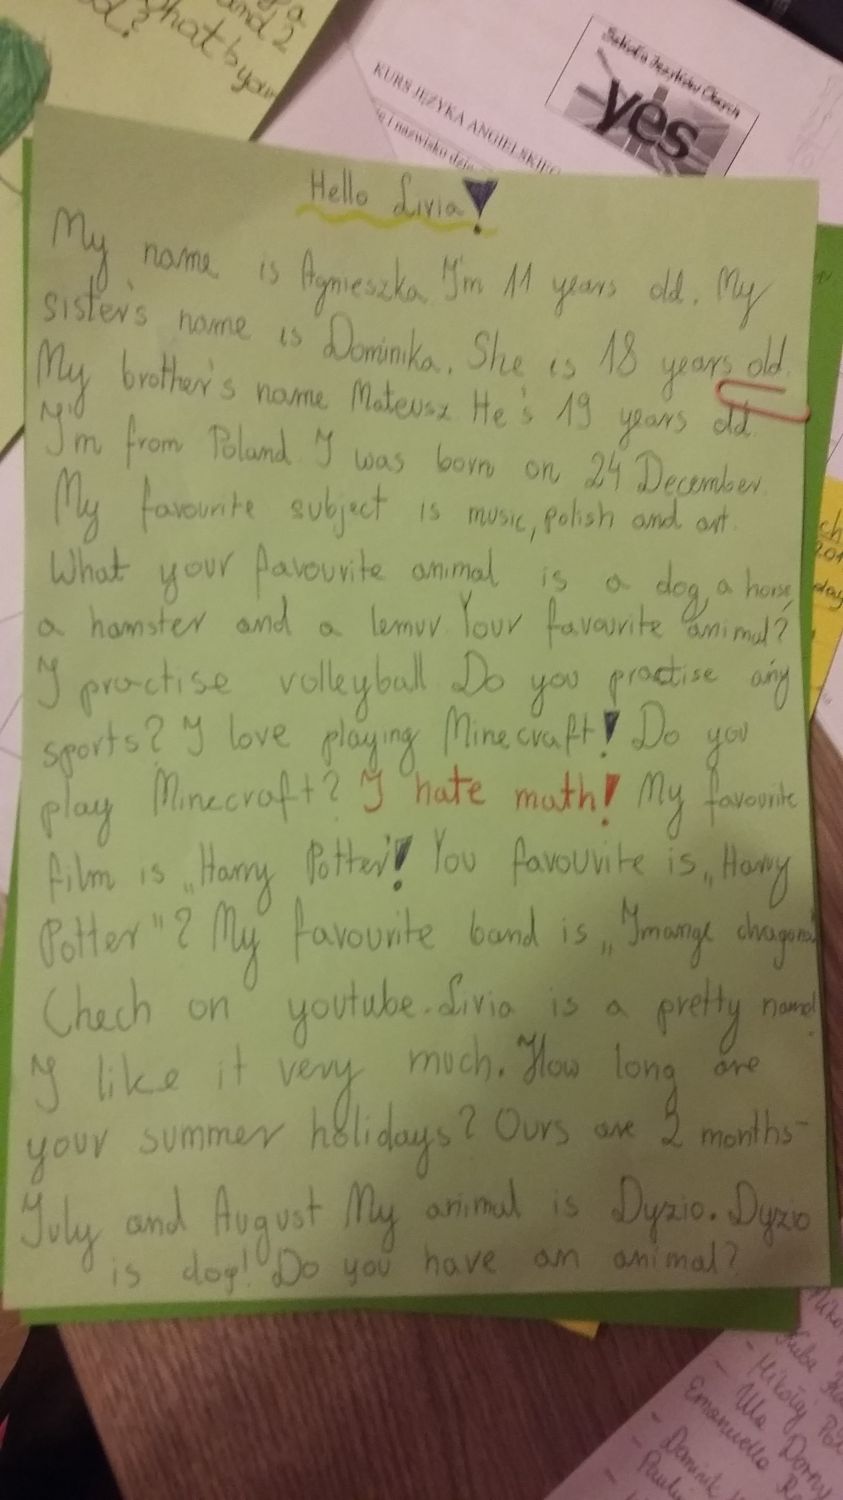 and 2
What's your
Szkoła Języków Obcych
yes
KURS JĘZYKA ANGIELSKIEGO
Hello Livia!
My name is Agnieszka I'm 11 years old. My
sister's name is Dominika. She is 18 years old.
My brother's name Mateusz He's 19 years old.
I'm from Poland. I was born on 24 December.
My favourite subject is music, polish and art.
What your favourite animal is a dog, a horse,
a hamster and a lemur. Your favourite animal?
I practise volleyball Do you practise any
sports? I love playing Minecraft! Do you
play Minecraft? I hate math! My favourite
film is „Harry Potter"! You favourite is „Harry
Potter"? My favourite band is „Imange dragons"
Chech on youtube. Livia is a pretty name!
I like it very much. How long are
your summer holidays? Ours are 2 months-
July and August My animal is Dyzio. Dyzio
is dog! Do you have an animal?
- Mikołaj
- Ula
Emanuella
- Dominik